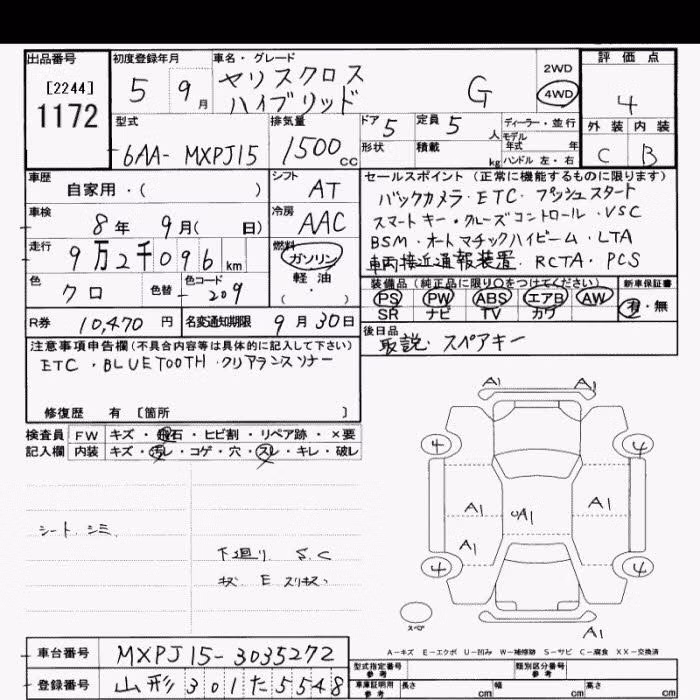 出品番号
[2244]
1172
初度登録年月
5 9月
車名・グレード
ヤリスクロス
ハイブリッド G
2WD
4WD
評価点
4
外装 内装
C B
型式
6AA- MXPJ15
排気量
1500cc
ドア 5
定員 5人
形状
積載 kg
ディーラー・並行
モデル年式 年
ハンドル 左・右
車歴
自家用・( )
シフト
AT
車検
8年 9月( 日)
冷房
AAC
走行
9万2千096km
燃料
ガソリン
軽油
( ・ )
色
クロ
色替
色コード
209
R券 10,470円
名変通知期限 9月30日
セールスポイント (正常に機能するものに限ります)
バックカメラ・ETC・プッシュスタート
スマートキー・クルーズコントロール・VSC
BSM・オートマチックハイビーム・LTA
車両接近通報装置・RCTA・PCS
装備品 (純正品に限り○をつけてください)
PS PW ABS エアB AW
SR ナビ TV カワ
新車保証書
有・無
後日品
取説・スペアキー
注意事項申告欄(不具合内容等は具体的に記入して下さい)
ETC・BLUETOOTH・クリアランスソナー
修復歴 有 [箇所 ]
検査員記入欄
FW キズ・飛石・ヒビ割・リペア跡・×要
内装 キズ・汚レ・コゲ・穴・スレ・キレ・破レ
シート シミ
下廻り S.C
キズ E スリキズ
A1 A1
4 4
A1 UA1 A1
A1
4 4
スペア
A1
A-キズ E-エクボ U-凹み W-補修跡 S-サビ C-腐食 XX-交換済
車台番号 MXPJ15-3035272
登録番号 山形301た5548
型式指定番号 参考
類別区分番号 参考
車庫証明用 参考
長さ cm
幅 cm
高さ cm